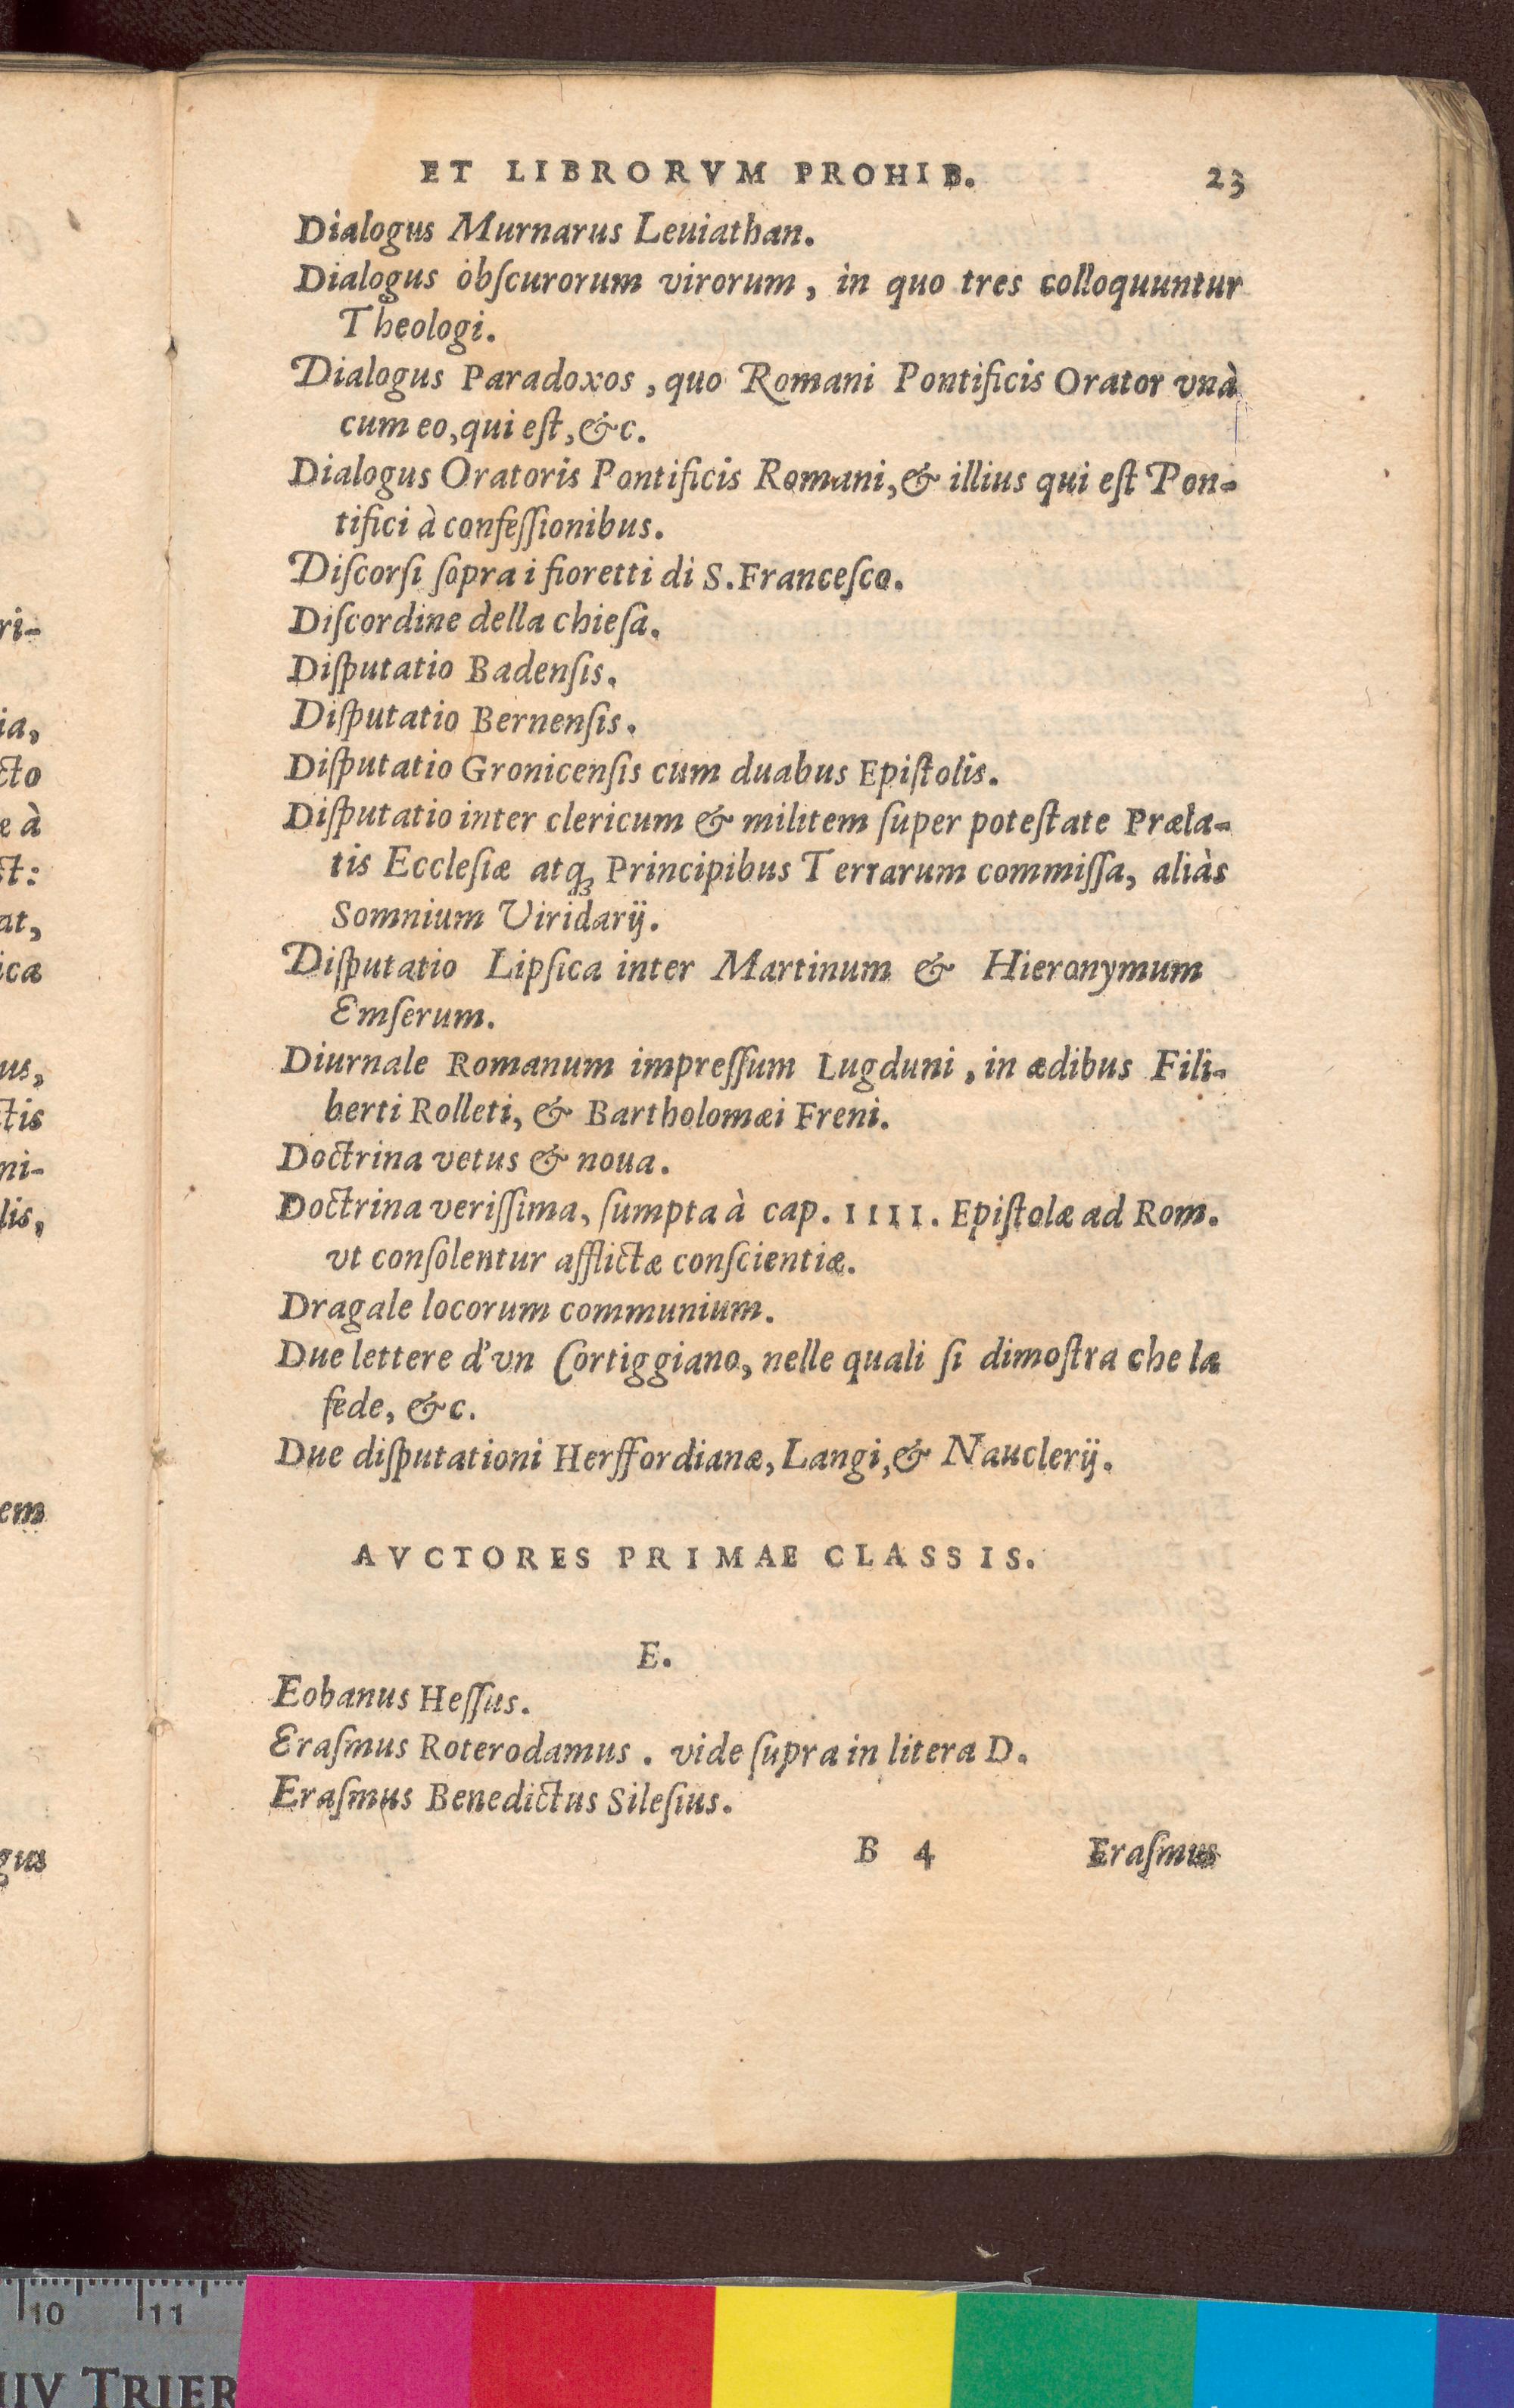 ET LIBRORVM PROHIB. 23
Dialogus Murnarus Leuiathan.
Dialogus obſcurorum virorum, in quo tres colloquuntur
Theologi.
Dialogus Paradoxos, quo Romani Pontificis Orator vnà
cum eo, qui eſt, &c.
Dialogus Oratoris Pontificis Romani, & illius qui eſt Pon-
tifici à confeſſionibus.
Diſcorſi ſopra i fioretti di S. Franceſco.
Diſcordine della chieſa.
Diſputatio Badenſis.
Diſputatio Bernenſis.
Diſputatio Gronicenſis cum duabus Epiſtolis.
Diſputatio inter clericum & militem ſuper poteſtate Præla-
tis Eccleſiæ atqꝫ Principibus Terrarum commiſſa, aliàs
Somnium Viridarij.
Diſputatio Lipſica inter Martinum & Hieronymum
Emſerum.
Diurnale Romanum impreſſum Lugduni, in ædibus Fili-
berti Rolleti, & Bartholomæi Freni.
Doctrina vetus & noua.
Doctrina veriſſima, ſumpta à cap. IIII. Epiſtolæ ad Rom.
vt conſolentur afflictæ conſcientiæ.
Dragale locorum communium.
Due lettere d'vn Cortiggiano, nelle quali ſi dimoſtra che la
fede, &c.
Due diſputationi Herffordianæ, Langi, & Nauclerij.
AVCTORES PRIMAE CLASSIS.
E.
Eobanus Heſſus.
Eraſmus Roterodamus. vide ſupra in litera D.
Eraſmus Benedictus Sileſius.
B 4 Eraſmus
ri-
ia,
cto
e à
ct:
at,
ica
us,
ctis
ni-
lis,
em
gus
10 11
IIV TRIER